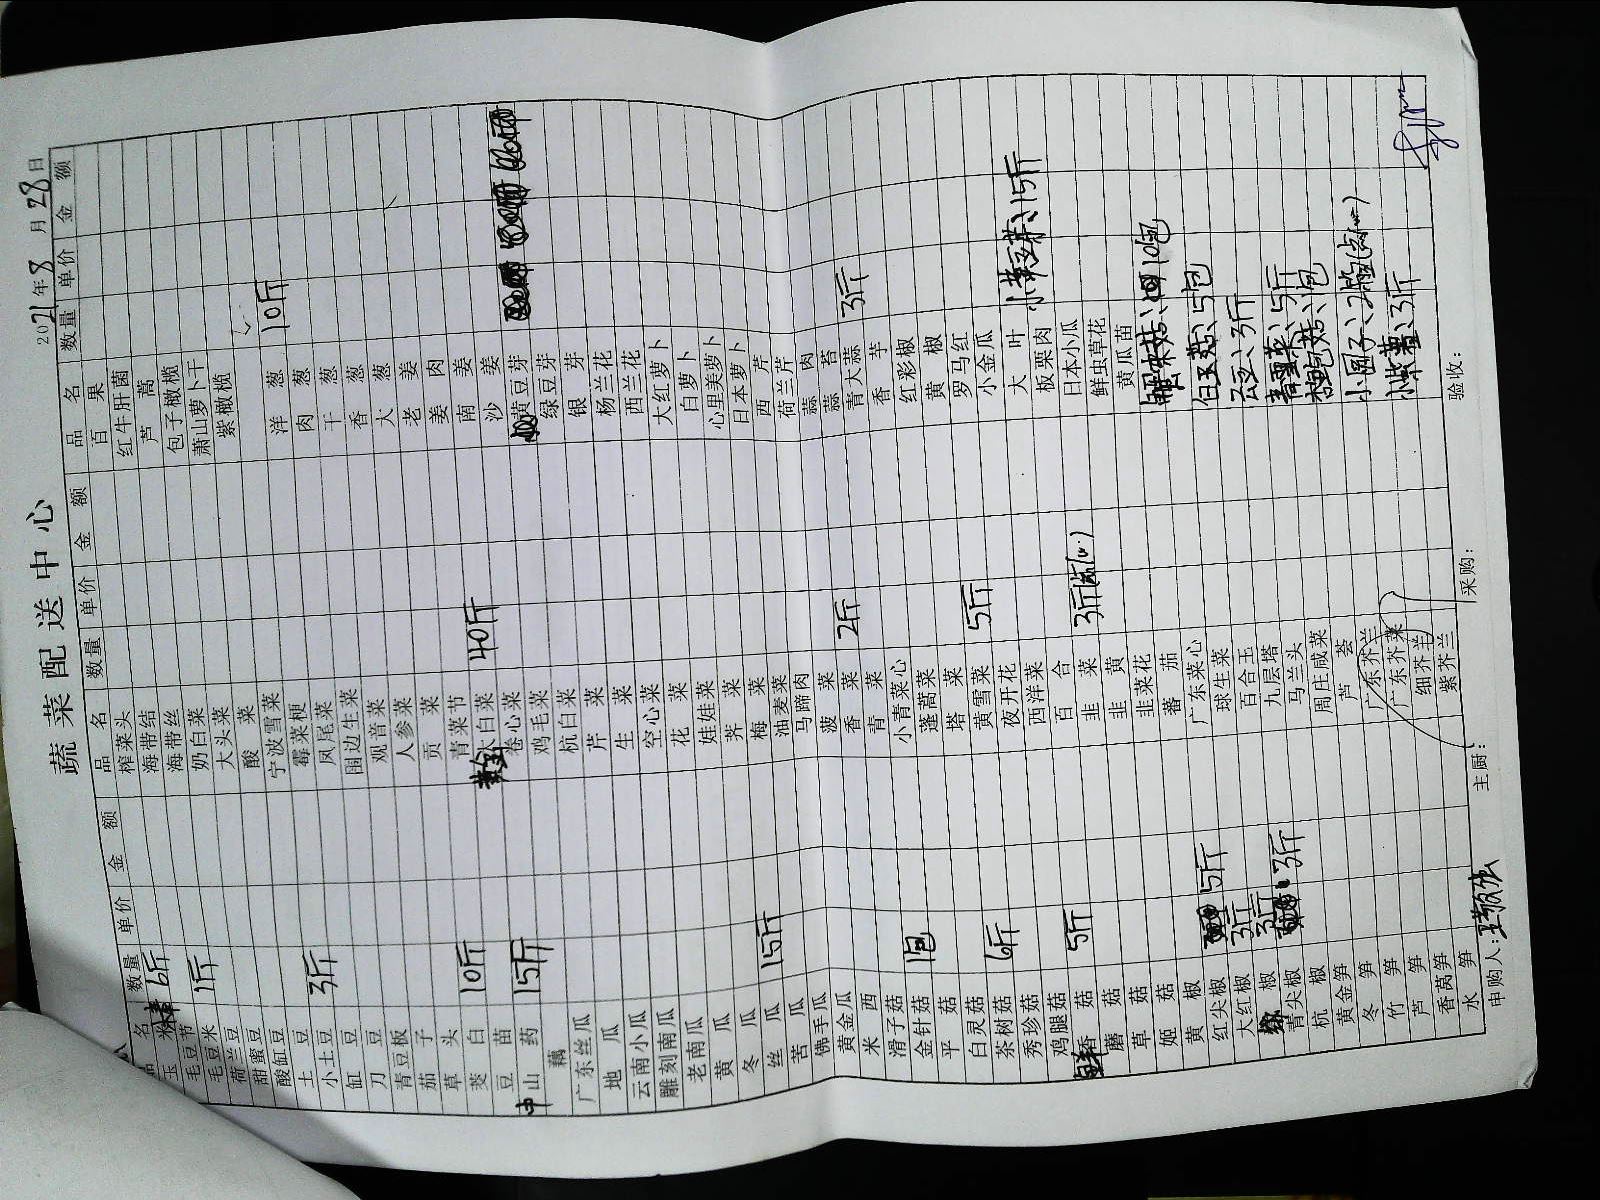 蔬菜配送中心
2021年8月28日
品 名 数量 单价 金 额 品 名 数量 单价 金 额 品 名 数量 单价 金 额
玉 米 6斤
毛豆节
毛豆米 1斤
荷兰豆
甜蜜豆
酸缸豆
土 豆
小土豆 3斤
缸 豆
刀 豆
青豆板
茄 子
草 头
茭 白 10斤
豆 苗
山 药 15斤
藕
广东丝瓜
地 瓜
云南小瓜
雕刻南瓜
老南瓜
黄 瓜
冬 瓜
丝 瓜 15斤
苦 瓜
佛手瓜
黄金瓜
米 西
滑子菇
金针菇 1包
平 菇
白灵菇
茶树菇 6斤
秀珍菇
鸡腿菇
鲜香 菇 5斤
蘑 菇
草 菇
姬 菇
黄 椒
红尖椒 5斤
大红椒 3斤
椒 3斤
青尖椒 3斤
杭 椒
黄金笋
冬 笋
竹 笋
芦 笋
香莴笋
水 笋
榨菜头
海带结
海带丝
奶白菜
大头菜
酸 菜
宁波雪菜
霉菜梗
凤尾菜
围边生菜
观音菜
人参菜
贡 菜
青菜节
黄金大白菜 40斤
卷心菜
鸡毛菜
杭白菜
芹 菜
生 菜
空心菜
花 菜
娃娃菜
荠 菜
梅 菜
油麦菜
马蹄肉
菠 菜
香 菜 2斤
青 菜
小青菜心
蓬蒿菜
塔 菜
黄雪菜 5斤
夜开花
西洋菜
百 合
韭 菜 3斤
韭 黄
韭菜花
番 茄
广东菜心
球生菜
百合玉
九层塔
马兰头
周庄咸菜
芦 荟
广东芥兰
广东芥菜
细芥兰
紫芥兰
百 果
红牛肝菌
芦 蒿
包子橄榄
萧山萝卜干
紫橄榄
洋 葱 10斤
肉 葱
干 葱
香 葱
大 葱
老 姜
姜 肉
南 姜
沙 姜
黄豆芽
绿豆芽
银 芽
杨兰花
西兰花
大红萝卜
白萝卜
心里美萝卜
日本萝卜
西 芹
荷兰芹
蒜 肉
蒜 苔
青大蒜 3斤
香 芋
红彩椒
黄 椒
罗马红
小金瓜
大 叶 小黄豆芽、15斤
板栗肉
日本小瓜
鲜虫草花
黄瓜苗
蟹味菇、10包
白玉菇、15包
云豆、3斤
香菜、5斤
杏鲍菇、1包
小圆子、2箱
小紫薯、3斤
申购人: 主厨: 采购: 验收: